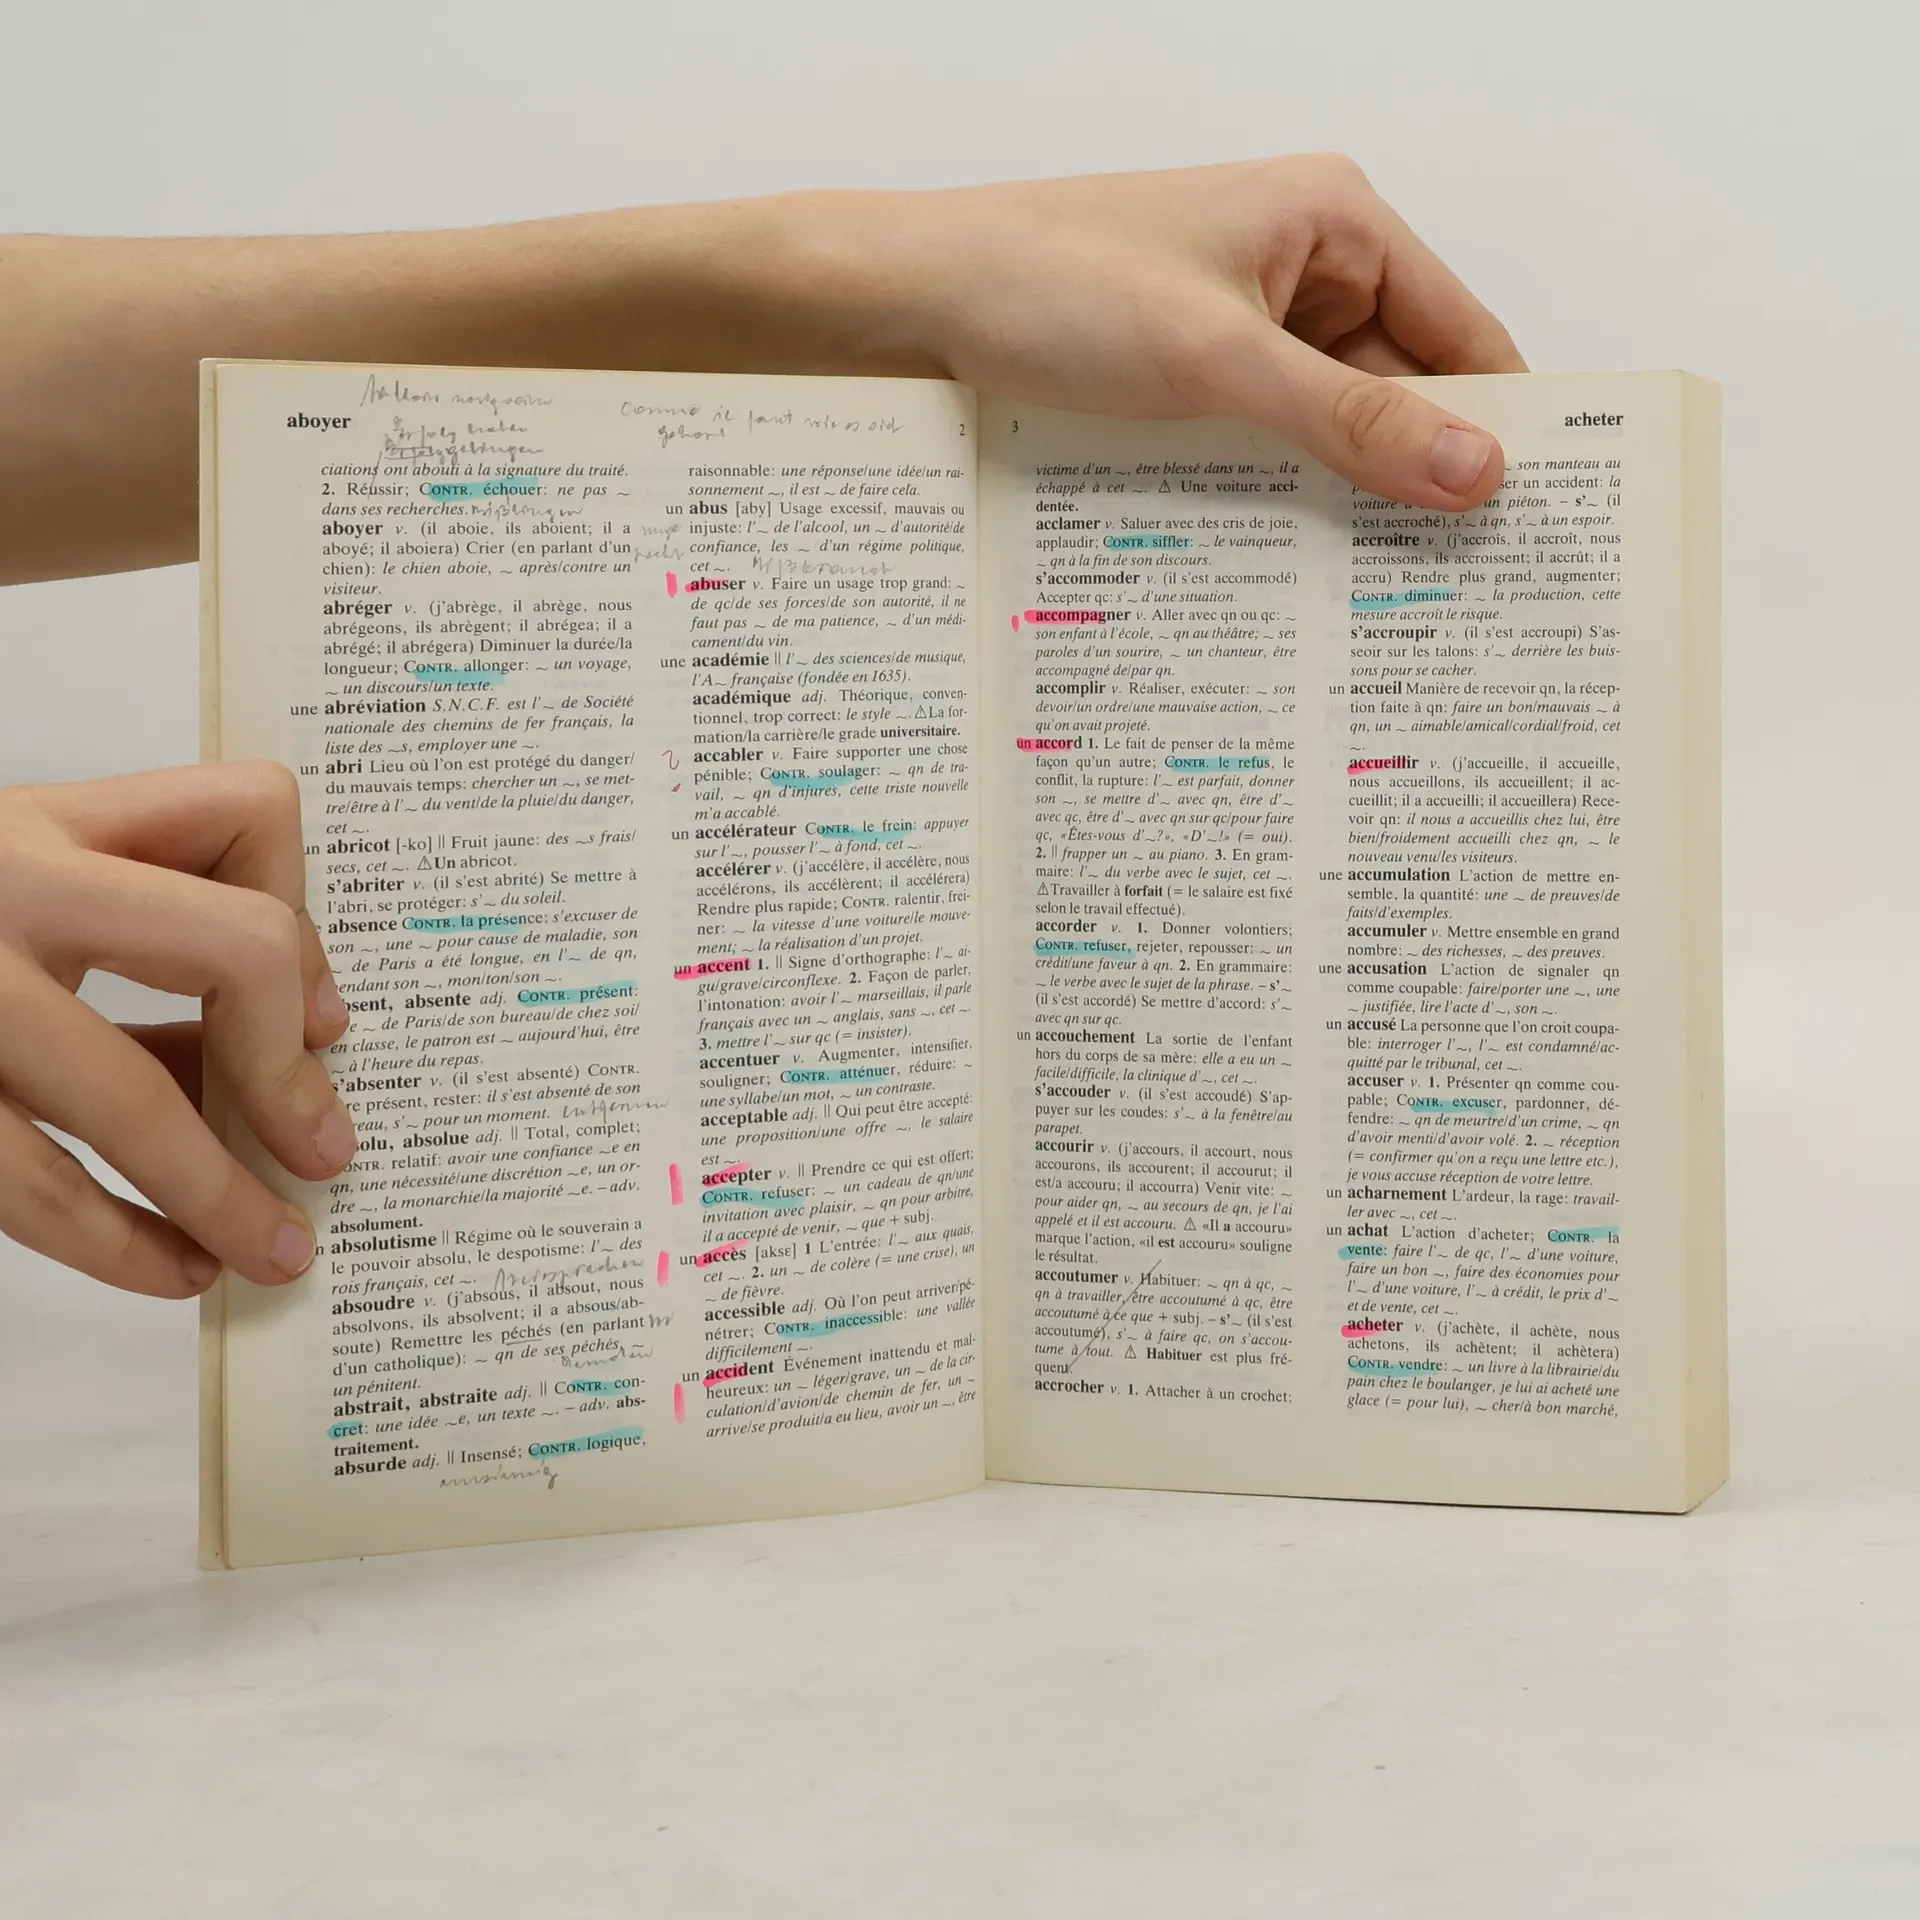 aboyer
2
ciations ont abouti à la signature du traité.
2. Réussir; CONTR. échouer: ne pas ~
dans ses recherches.
aboyer v. (il aboie, ils aboient; il a
aboyé; il aboiera) Crier (en parlant d'un
chien): le chien aboie, ~ après/contre un
visiteur.
abréger v. (j'abrège, il abrège, nous
abrégeons, ils abrègent; il abrégea; il a
abrégé; il abrégera) Diminuer la durée/la
longueur; CONTR. allonger: ~ un voyage,
~ un discours/un texte.
une abréviation S.N.C.F. est l'~ de Société
nationale des chemins de fer français, la
liste des ~s, employer une ~.
un abri Lieu où l'on est protégé du danger/
du mauvais temps: chercher un ~, se met-
tre/être à l'~ du vent/de la pluie/du danger,
cet ~.
un abricot [-ko] || Fruit jaune: des ~s frais/
secs, cet ~. ⚠Un abricot.
s'abriter v. (il s'est abrité) Se mettre à
l'abri, se protéger: s'~ du soleil.
absence CONTR. la présence: s'excuser de
son ~, une ~ pour cause de maladie, son
~ de Paris a été longue, en l'~ de qn,
pendant son ~, mon/ton/son ~.
absent, absente adj. CONTR. présent:
~ de Paris/de son bureau/de chez soi/
en classe, le patron est ~ aujourd'hui, être
~ à l'heure du repas.
s'absenter v. (il s'est absenté) CONTR.
présent, rester: il s'est absenté de son
s'~ pour un moment.
absolu, absolue adj. || Total, complet;
CONTR. relatif: avoir une confiance ~e en
qn, une nécessité/une discrétion ~e, un or-
dre ~, la monarchie/la majorité ~e. – adv.
absolument.
absolutisme || Régime où le souverain a
le pouvoir absolu, le despotisme: l'~ des
rois français, cet ~.
absoudre v. (j'absous, il absout, nous
absolvons, ils absolvent; il a absous/ab-
soute) Remettre les péchés (en parlant
d'un catholique): ~ qn de ses péchés, ~
un pénitent.
abstrait, abstraite adj. || CONTR. con-
cret: une idée ~e, un texte ~. – adv. abs-
traitement.
absurde adj. || Insensé; CONTR. logique,
raisonnable: une réponse/une idée/un rai-
sonnement ~, il est ~ de faire cela.
un abus [aby] Usage excessif, mauvais ou
injuste: l'~ de l'alcool, un ~ d'autorité/de
confiance, les ~ d'un régime politique,
cet ~.
abuser v. Faire un usage trop grand: ~
de qc/de ses forces/de son autorité, il ne
faut pas ~ de ma patience, ~ d'un médi-
cament/du vin.
une académie || l'~ des sciences/de musique,
l'A~ française (fondée en 1635).
académique adj. Théorique, conven-
tionnel, trop correct: le style ~. ⚠La for-
mation/la carrière/le grade universitaire.
accabler v. Faire supporter une chose
pénible; CONTR. soulager: ~ qn de tra-
vail, ~ qn d'injures, cette triste nouvelle
m'a accablé.
un accélérateur CONTR. le frein: appuyer
sur l'~, pousser l'~ à fond, cet ~.
accélérer v. (j'accélère, il accélère, nous
accélérons, ils accélèrent; il accélérera)
Rendre plus rapide; CONTR. ralentir, frei-
ner: ~ la vitesse d'une voiture/le mouve-
ment; ~ la réalisation d'un projet.
un accent 1. || Signe d'orthographe: l'~ ai-
gu/grave/circonflexe. 2. Façon de parler,
l'intonation: avoir l'~ marseillais, il parle
français avec un ~ anglais, sans ~, cet ~.
3. mettre l'~ sur qc (= insister).
accentuer v. Augmenter, intensifier,
souligner; CONTR. atténuer, réduire: ~
une syllabe/un mot, ~ un contraste.
acceptable adj. || Qui peut être accepté:
une proposition/une offre ~, le salaire
est ~.
accepter v. || Prendre ce qui est offert;
CONTR. refuser: ~ un cadeau de qn/une
invitation avec plaisir, ~ qn pour arbitre,
il a accepté de venir, ~ que + subj.
un accès [aksɛ] 1 L'entrée: l'~ aux quais,
cet ~. 2. un ~ de colère (= une crise), un
~ de fièvre.
accessible adj. Où l'on peut arriver/pé-
nétrer; CONTR. inaccessible: une vallée
difficilement ~.
un accident Événement inattendu et mal-
heureux: un ~ léger/grave, un ~ de la cir-
culation/d'avion/de chemin de fer, un ~
arrive/se produit/a eu lieu, avoir un ~, être
3
acheter
victime d'un ~, être blessé dans un ~, il a
échappé à cet ~. ⚠ Une voiture acci-
dentée.
acclamer v. Saluer avec des cris de joie,
applaudir; CONTR. siffler: ~ le vainqueur,
~ qn à la fin de son discours.
s'accommoder v. (il s'est accommodé)
Accepter qc: s'~ d'une situation.
accompagner v. Aller avec qn ou qc: ~
son enfant à l'école, ~ qn au théâtre; ~ ses
paroles d'un sourire, ~ un chanteur, être
accompagné de/par qn.
accomplir v. Réaliser, exécuter: ~ son
devoir/un ordre/une mauvaise action, ~ ce
qu'on avait projeté.
un accord 1. Le fait de penser de la même
façon qu'un autre; CONTR. le refus, le
conflit, la rupture: l'~ est parfait, donner
son ~, se mettre d'~ avec qn, être d'~
avec qc, être d'~ avec qn sur qc/pour faire
qc, «Êtes-vous d'~?», «D'~!» (= oui).
2. || frapper un ~ au piano. 3. En gram-
maire: l'~ du verbe avec le sujet, cet ~.
⚠Travailler à forfait (= le salaire est fixé
selon le travail effectué).
accorder v. 1. Donner volontiers;
CONTR. refuser, rejeter, repousser: ~ un
crédit/une faveur à qn. 2. En grammaire:
~ le verbe avec le sujet de la phrase. – s'~
(il s'est accordé) Se mettre d'accord: s'~
avec qn sur qc.
un accouchement La sortie de l'enfant
hors du corps de sa mère: elle a eu un ~
facile/difficile, la clinique d'~, cet ~.
s'accouder v. (il s'est accoudé) S'ap-
puyer sur les coudes: s'~ à la fenêtre/au
parapet.
accourir v. (j'accours, il accourt, nous
accourons, ils accourent; il accourut; il
est/a accouru; il accourra) Venir vite: ~
pour aider qn, ~ au secours de qn, je l'ai
appelé et il est accouru. ⚠ «Il a accouru»
marque l'action, «il est accouru» souligne
le résultat.
accoutumer v. Habituer: ~ qn à qc, ~
qn à travailler, être accoutumé à qc, être
accoutumé à ce que + subj. – s'~ (il s'est
accoutumé), s'~ à faire qc, on s'accou-
tume à tout. ⚠ Habituer est plus fré-
quent.
accrocher v. 1. Attacher à un crochet:
~ son manteau au
ser un accident: la
voiture a un piéton. – s'~ (il
s'est accroché), s'~ à qn, s'~ à un espoir.
accroître v. (j'accroîs, il accroît, nous
accroissons, ils accroissent; il accrût; il a
accru) Rendre plus grand, augmenter;
CONTR. diminuer: ~ la production, cette
mesure accroît le risque.
s'accroupir v. (il s'est accroupi) S'as-
seoir sur les talons: s'~ derrière les buis-
sons pour se cacher.
un accueil Manière de recevoir qn, la récep-
tion faite à qn: faire un bon/mauvais ~ à
qn, un ~ aimable/amical/cordial/froid, cet
~.
accueillir v. (j'accueille, il accueille,
nous accueillons, ils accueillent; il ac-
cueillit; il a accueilli; il accueillera) Rece-
voir qn: il nous a accueillis chez lui, être
bien/froidement accueilli chez qn, ~ le
nouveau venu/les visiteurs.
une accumulation L'action de mettre en-
semble, la quantité: une ~ de preuves/de
faits/d'exemples.
accumuler v. Mettre ensemble en grand
nombre: ~ des richesses, ~ des preuves.
une accusation L'action de signaler qn
comme coupable: faire/porter une ~, une
~ justifiée, lire l'acte d'~, son ~.
un accusé La personne que l'on croit coupa-
ble: interroger l'~, l'~ est condamné/ac-
quitté par le tribunal, cet ~.
accuser v. 1. Présenter qn comme cou-
pable; CONTR. excuser, pardonner, dé-
fendre: ~ qn de meurtre/d'un crime, ~ qn
d'avoir menti/d'avoir volé. 2. ~ réception
(= confirmer qu'on a reçu une lettre etc.),
je vous accuse réception de votre lettre.
un acharnement L'ardeur, la rage: travail-
ler avec ~, cet ~.
un achat L'action d'acheter; CONTR. la
vente: faire l'~ de qc, l'~ d'une voiture,
faire un bon ~, faire des économies pour
l'~ d'une voiture, l'~ à crédit, le prix d'~
et de vente, cet ~.
acheter v. (j'achète, il achète, nous
achetons, ils achètent; il achètera)
CONTR. vendre: ~ un livre à la librairie/du
pain chez le boulanger, je lui ai acheté une
glace (= pour lui), ~ cher/à bon marché,